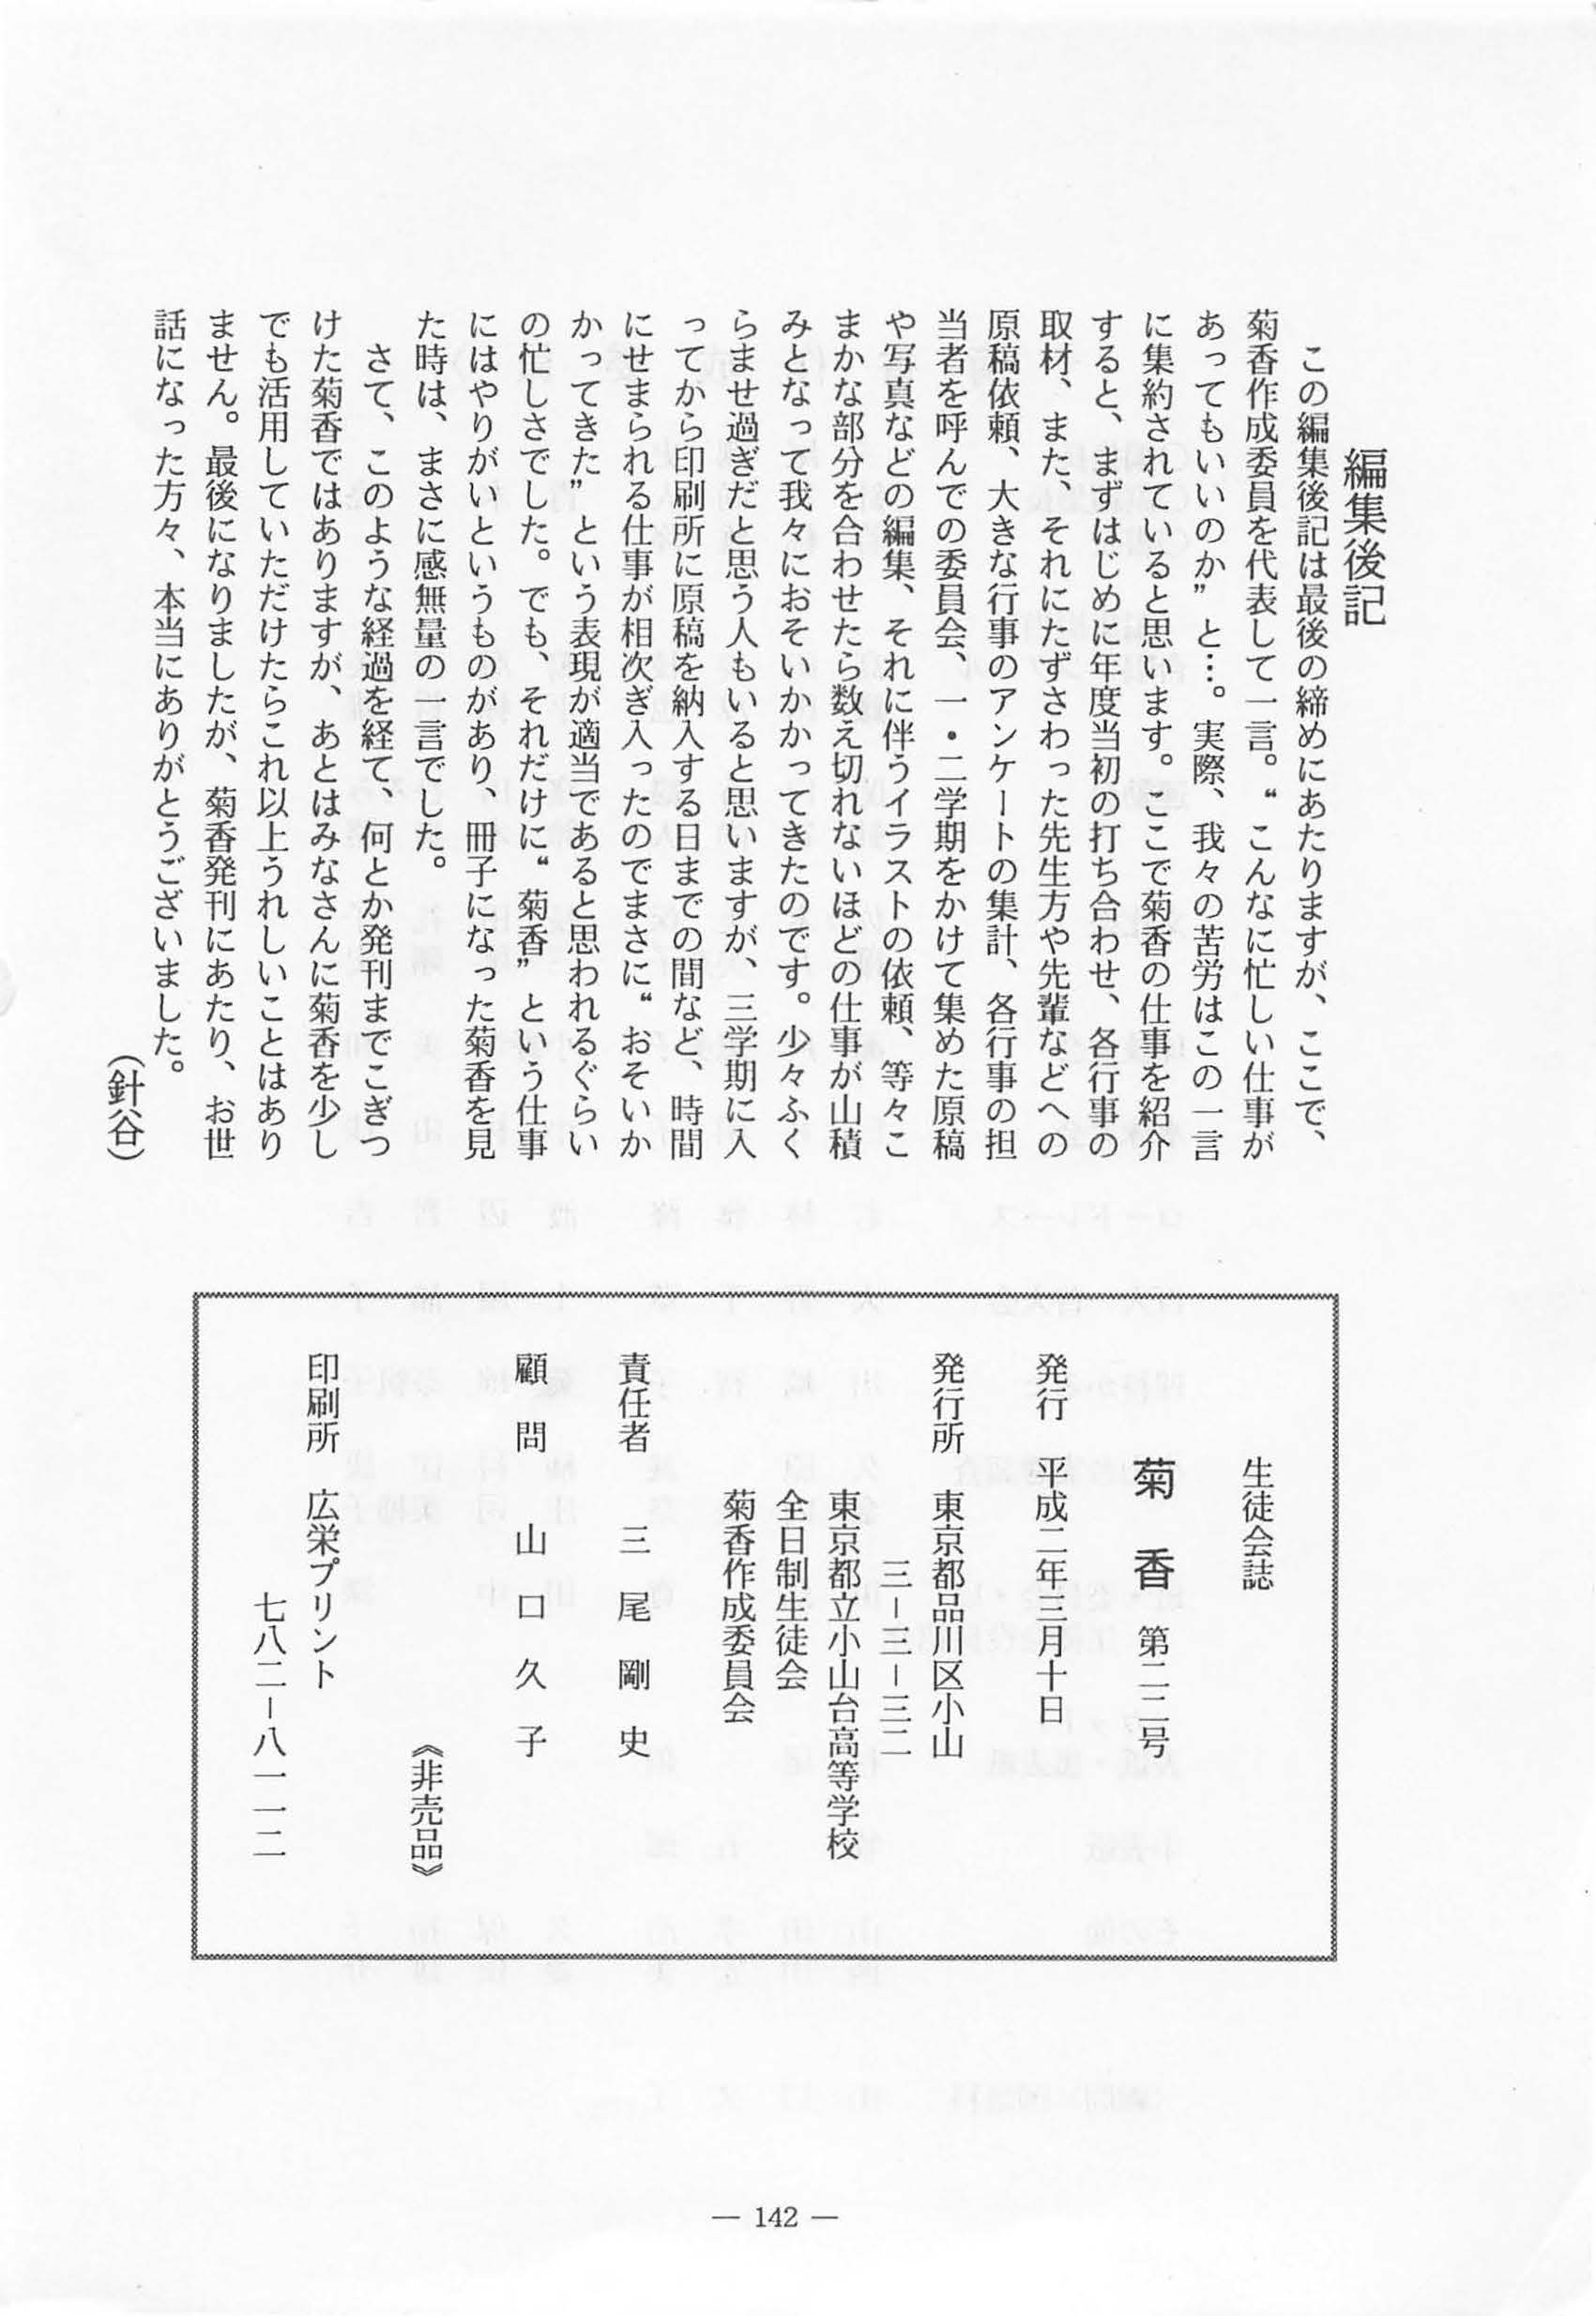 編集後記
この編集後記は最後の締めにあたりますが、ここで、
菊香作成委員を代表して一言。“こんなに忙しい仕事が
あってもいいのか”と…。実際、我々の苦労はこの一言
に集約されていると思います。ここで菊香の仕事を紹介
すると、まずはじめに年度当初の打ち合わせ、各行事の
取材、また、それにたずさわった先生方や先輩などへの
原稿依頼、大きな行事のアンケートの集計、各行事の担
当者を呼んでの委員会、一・二学期をかけて集めた原稿
や写真などの編集、それに伴うイラストの依頼、等々こ
まかな部分を合わせたら数え切れないほどの仕事が山積
みとなって我々におそいかかってきたのです。少々ふく
らませ過ぎだと思う人もいると思いますが、三学期に入
ってから印刷所に原稿を納入する日までの間など、時間
にせまられる仕事が相次ぎ入ったのでまさに“おそいか
かってきた”という表現が適当であると思われるぐらい
の忙しさでした。でも、それだけに“菊香”という仕事
にはやりがいというものがあり、冊子になった菊香を見
た時は、まさに感無量の一言でした。
さて、このような経過を経て、何とか発刊までこぎつ
けた菊香ではありますが、あとはみなさんに菊香を少し
でも活用していただけたらこれ以上うれしいことはあり
ません。最後になりましたが、菊香発刊にあたり、お世
話になった方々、本当にありがとうございました。
（針谷）
生徒会誌
菊香 第二二号
発行 平成二年三月十日
発行所 東京都品川区小山
三－三－三二
東京都立小山台高等学校
全日制生徒会
菊香作成委員会
責任者 三尾剛史
顧問 山口久子
《非売品》
印刷所 広栄プリント
七八二－八一一二
― 142 ―